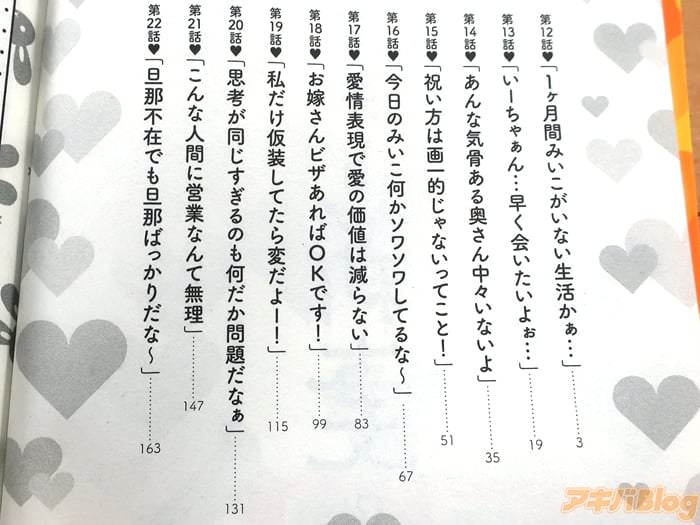 第12話♥「1ヶ月間みいこがいない生活かぁ…」………3
第13話♥「いーちゃぁん…早く会いたいよぉ…」………19
第14話♥「あんな気骨ある奥さん中々いないよ」………35
第15話♥「祝い方は画一的じゃないってこと!」………51
第16話♥「今日のみいこ何かソワソワしてるな〜」………67
第17話♥「愛情表現で愛の価値は減らない」………83
第18話♥「お嫁さんビザあればOKです!」………99
第19話♥「私だけ仮装してたら変だよー!」………115
第20話♥「思考が同じすぎるのも何だか問題だなぁ」………131
第21話♥「こんな人間に営業なんて無理」………147
第22話♥「旦那不在でも旦那ばっかりだな〜」………163
アキバBlog